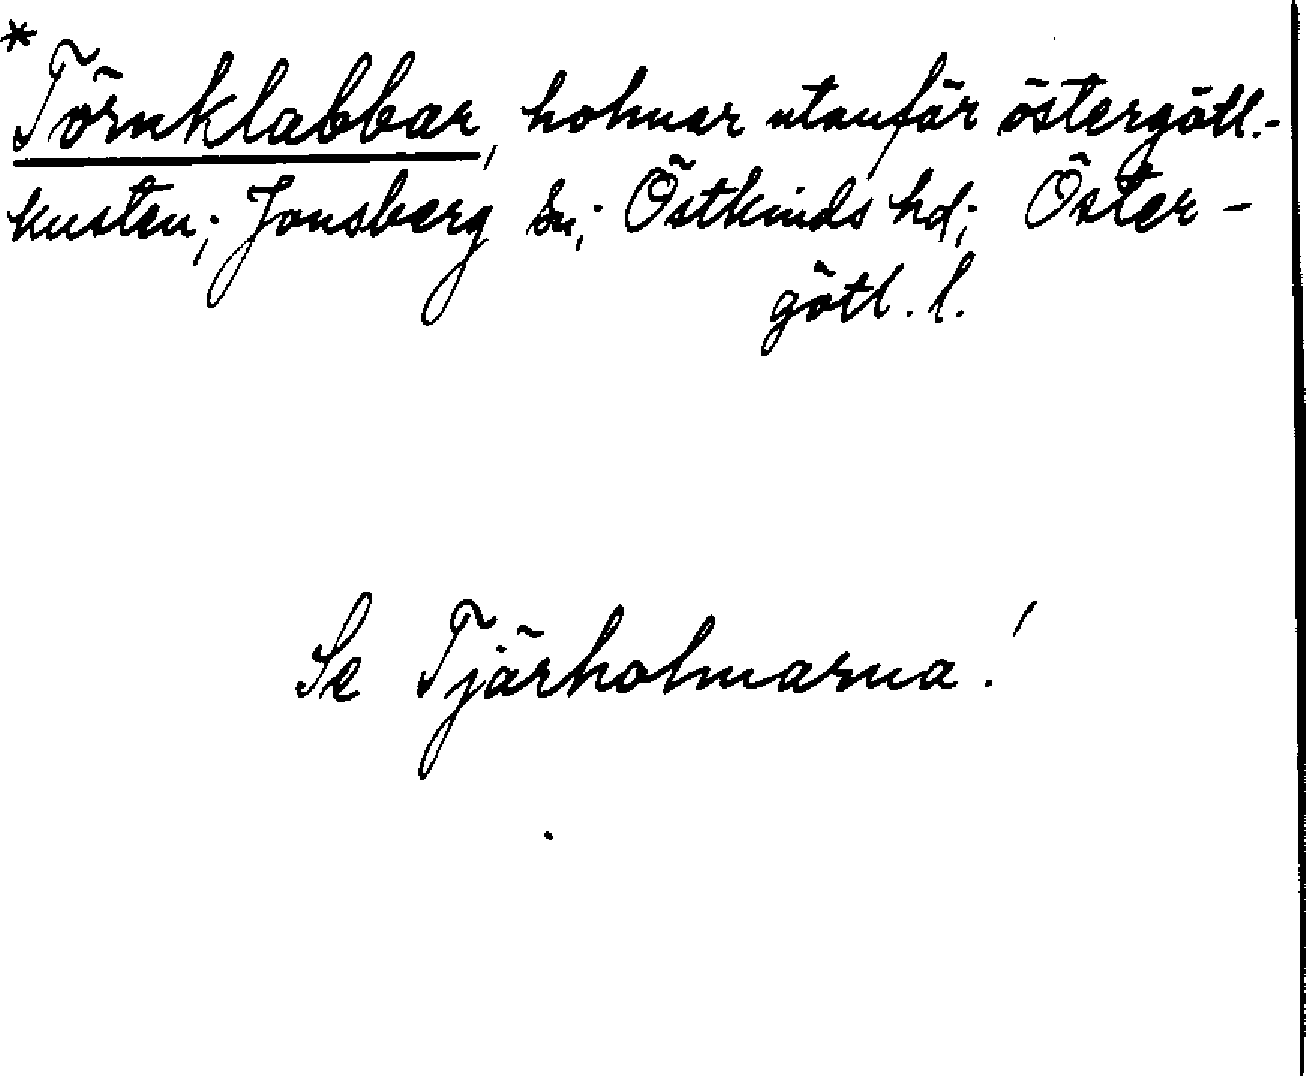 * Törnklabbar, holmar utanför östergötl.-
kusten; Jonsberg sn; Östkinds hd; Öster-
götl. l.
Se Tjärholmarna!